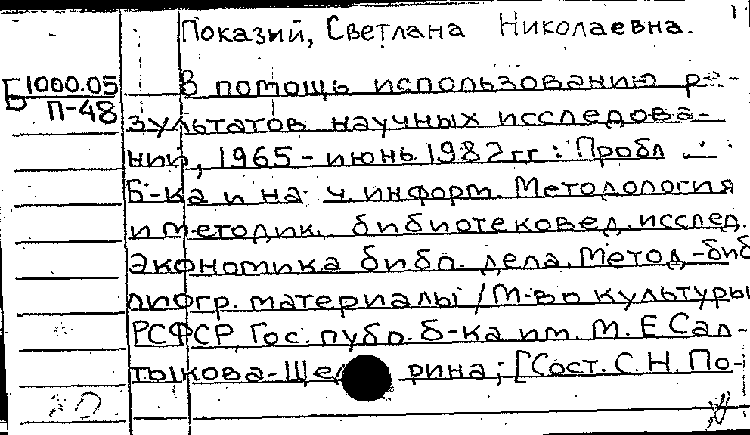 Показий, Светлана Николаевна.
Б 1000.05
П-48
В помощь использованию ре-
зультатов научных исследова-
ний, 1965 - июнь 1982 гг: Пробл ...
Б-ка и науч. информ. Методология
и методик. библиотековед. исслед.
Экономика библ. дела. Метод.-биб
лиогр. материалы / М-во культуры
РСФСР, Гос. публ. б-ка им. М. Е Сал-
тыкова-Щедрина; [Сост. С. Н. По-